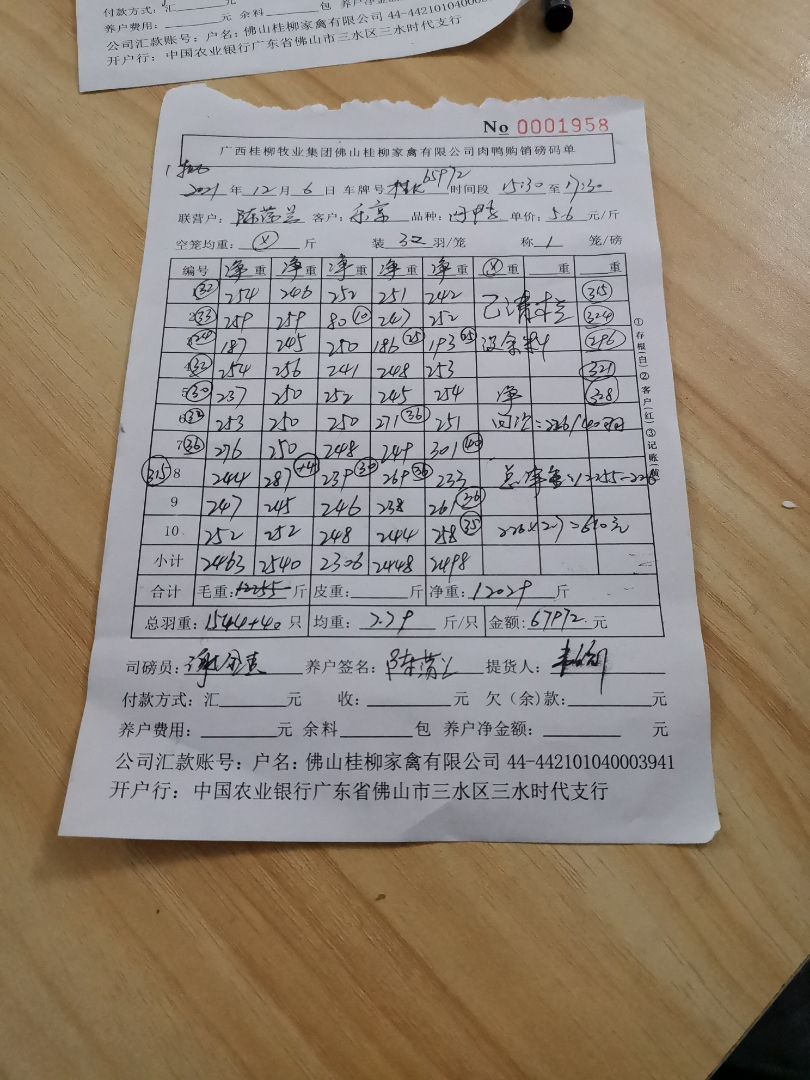 付款方式：汇 元
养户费用： 元 余料 包 养户净金额
公司汇款账号：户名：佛山桂柳家禽有限公司 44-4421010400039
开户行：中国农业银行广东省佛山市三水区三水时代支行
No 0001958
广西桂柳牧业集团佛山桂柳家禽有限公司肉鸭购销磅码单
2021 年 12 月 6 日 车牌号 65972 时间段 15:30 至 17:30
联营户： 客户：乐京 品种：肉鸭 单价：5.6 元/斤
空笼均重： 斤 装 32 羽/笼 称 1 笼/磅
编号 净重 净重 净重 净重 净重 重 重 重
1 32 254 246 252 251 242 已清 315
2 33 259 259 80 10 247 252 324
3 24 187 245 250 186 25 193 25 没余料 296
4 32 254 256 241 248 253 321
5 30 237 250 252 245 254 净 328
6 32 253 250 250 271 36 251 =226/40
7 36 276 250 248 249 301 40
315 8 244 287 239 30 269 36 233 总净重:12255-226
9 247 245 246 238 261 36
10 252 252 248 244 258 35 226×2.7=610元
小计 2463 2540 2306 2448 2498
合计 毛重：12255 斤 皮重： 斤 净重：12029 斤
总羽重：1544+40 只 均重：7.79 斤/只 金额：67972 元
司磅员： 养户签名： 提货人：
付款方式：汇 元 收： 元 欠（余）款： 元
养户费用： 元 余料 包 养户净金额： 元
公司汇款账号：户名：佛山桂柳家禽有限公司 44-442101040003941
开户行：中国农业银行广东省佛山市三水区三水时代支行
①存根(白)②客户(红)③记账(黄)